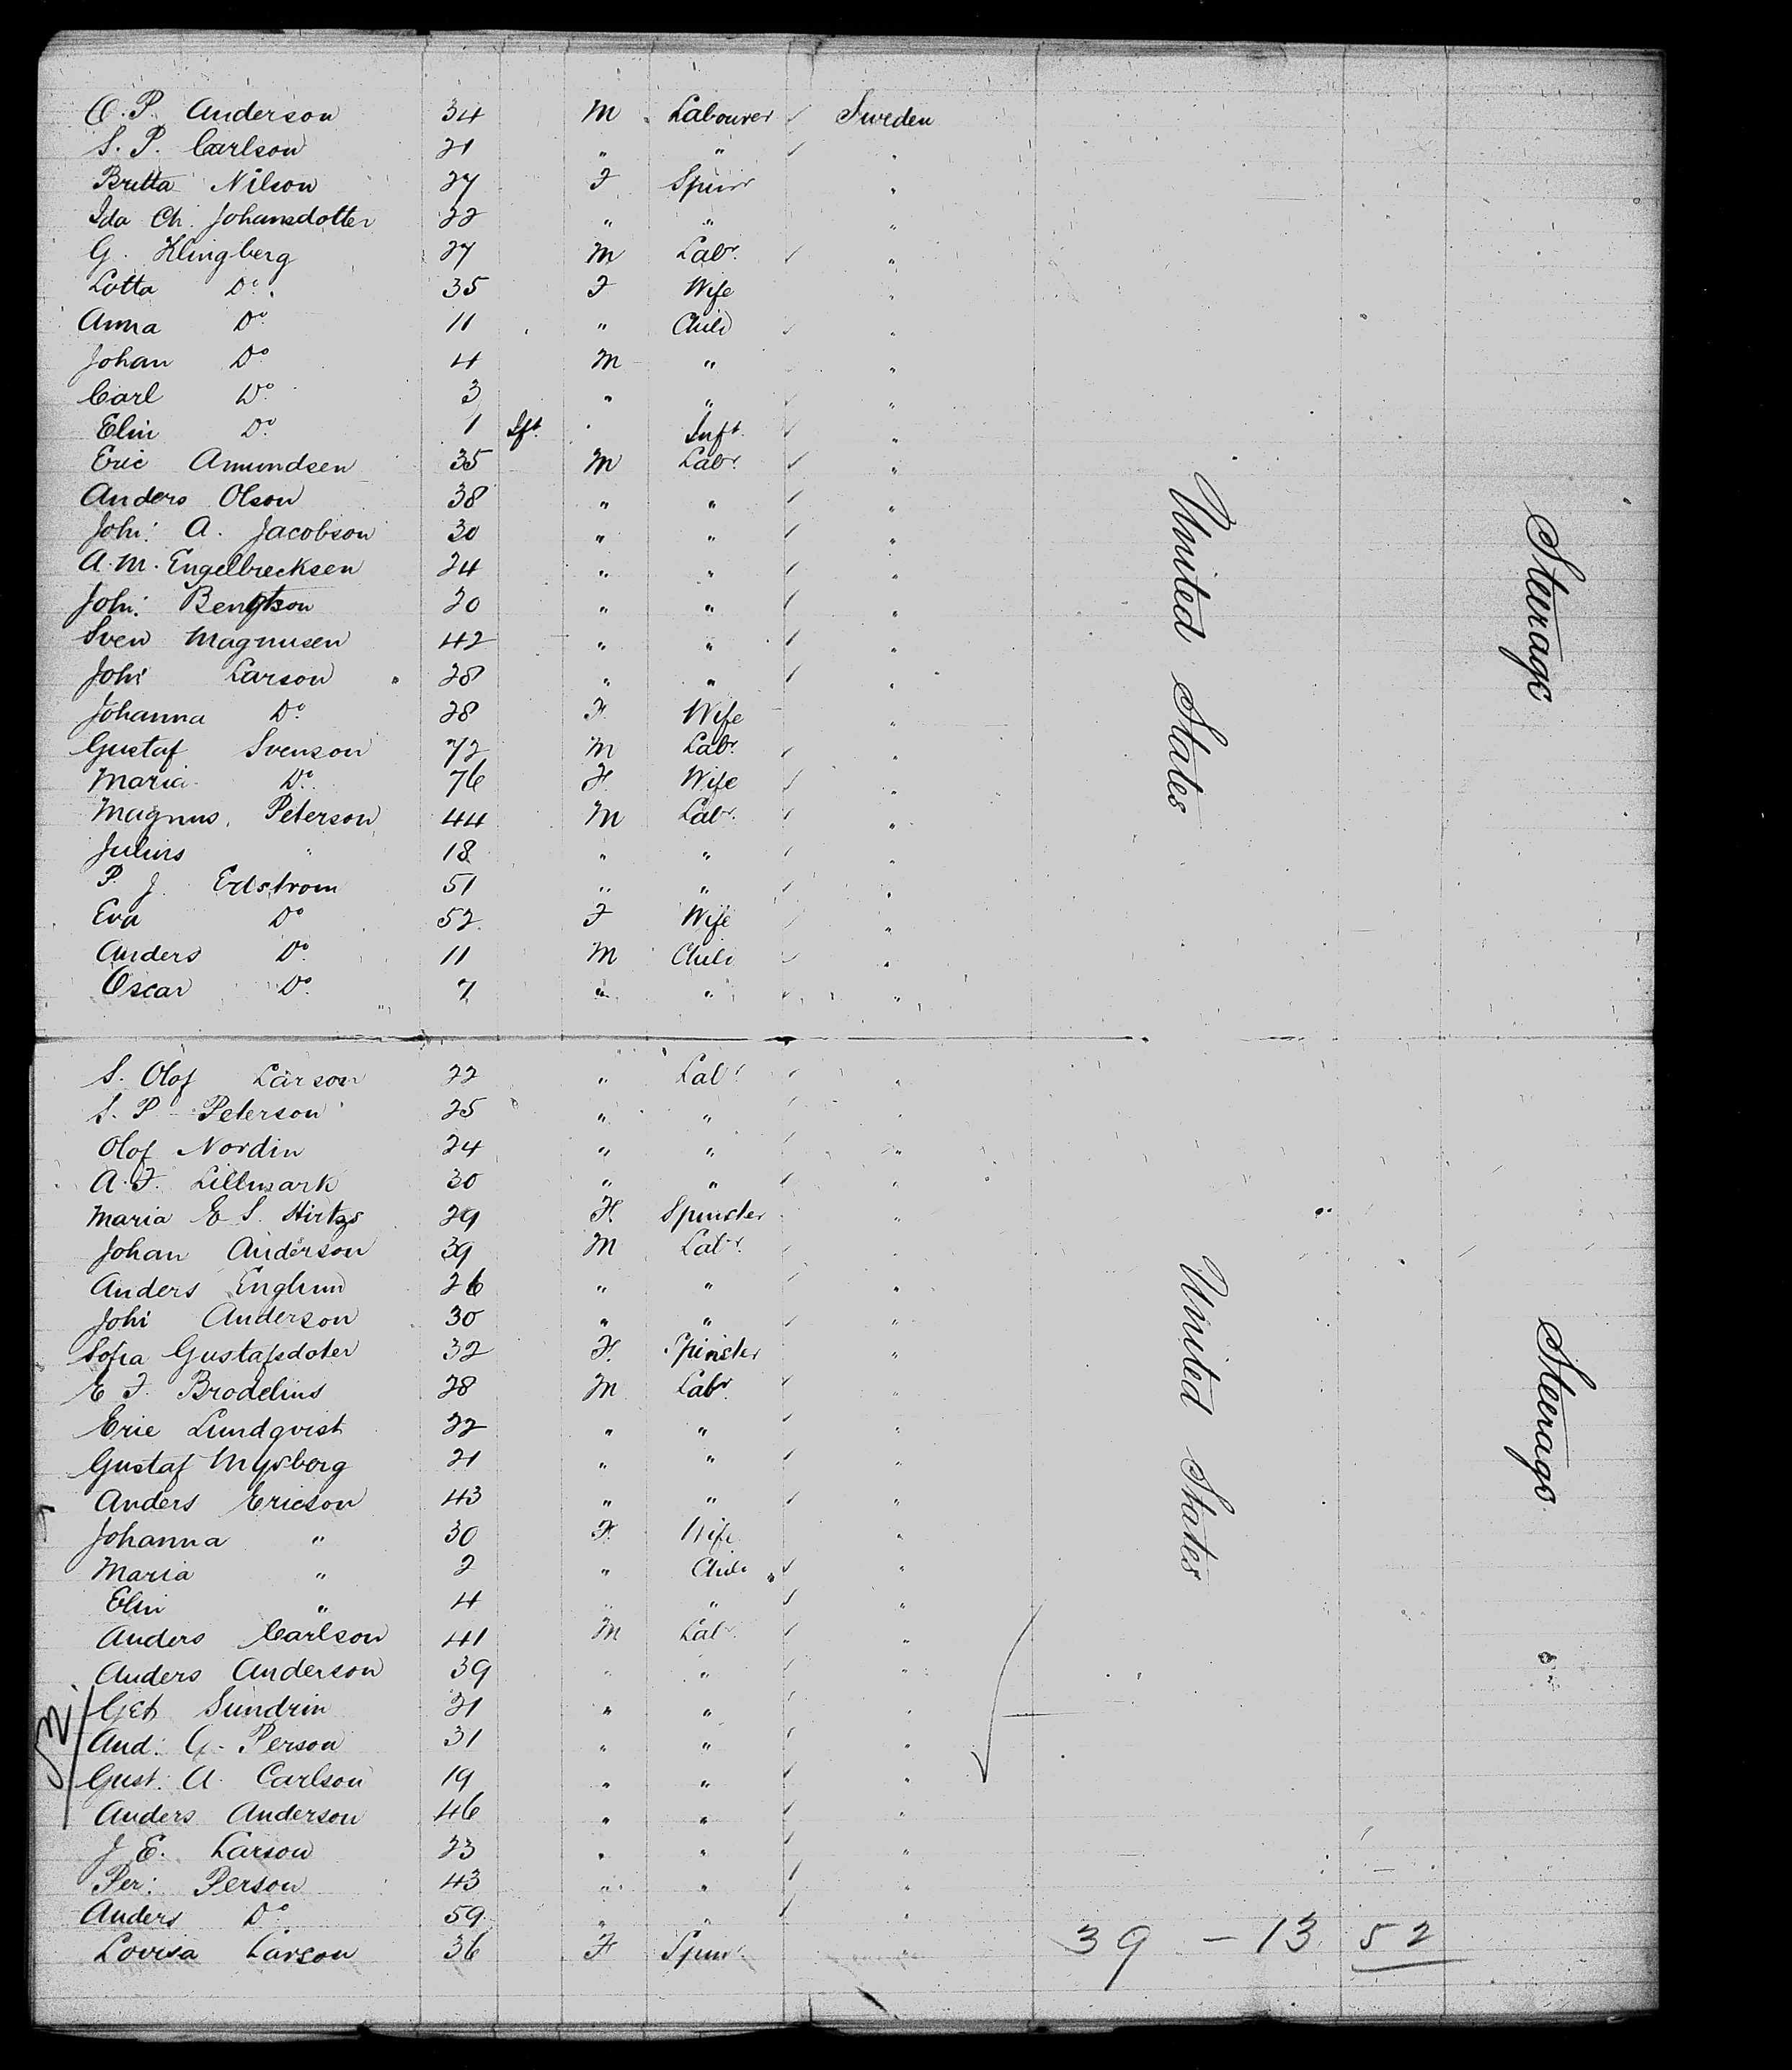 O. P. Anderson 34 M Labourer ✓ Sweden
S. P. Carlson 21 " " ✓ "
Britta Nilson 27 F Spinr "
Ida Ch. Johansdotter 22 " " "
G. Klingberg 27 M Labr. ✓ "
Lotta Do. 35 F Wife "
Anna Do 11 " Child ✓ "
Johan Do 4 M " "
Carl Do 3 " " ✓ "
Elin Do 1 Ift. " Inft. ✓ "
Eric Amundsen 35 M Labr. ✓ "
Anders Olson 38 " " ✓ "
Joh: A. Jacobson 30 " " ✓ "
A. M. Engelbrecksen 24 " " ✓ "
Joh: Bengtson 20 " " ✓ "
Sven Magnusen 42 " " ✓ "
Joh: Larson 28 " " ✓ "
Johanna Do 28 F. Wife "
Gustaf Svenson 72 M Labr. ✓ "
Maria Do. 76 F. Wife ✓ "
Magnus Peterson 44 M Labr. ✓ "
Julius " 18 " " ✓ "
P. J. Edstrom 51 " " ✓ "
Eva Do 52 F Wife ✓ "
Anders Do 11 M Child ✓ "
Oscar Do 7 " " ✓ "
United States
Steerage
S. Olof Larson 22 " Labr ✓ "
S. P. Peterson 25 " " ✓ "
Olof Nordin 24 " " ✓ "
A. F. Lillmark 30 " " ✓ "
Maria E S. 29 F. Spinster "
Johan Anderson 39 M Labr. ✓ "
Anders Englund 26 " " ✓ "
Joh: Anderson 30 " " ✓ "
Sofia Gustafsdoter 32 F. Spinster "
E F. Brodelius 28 M Labr. ✓ "
Eric Lundqvist 22 " " ✓ "
Gustaf 21 " " ✓ "
Anders Ericson 43 " " ✓ "
Johanna " 30 F. Wife "
Maria " 2 " Child ✓ "
Elin " 4 " " ✓ "
Anders Carlson 41 M Labr. ✓ "
Anders Anderson 39 " " ✓ "
Sundrin 21 " " ✓ "
And: G. Person 31 " " ✓ "
Gust: A. Carlson 19 " " ✓ "
Anders Anderson 46 " " ✓ "
J E. Larson 23 " " ✓ "
Per: Person 43 " " ✓ "
Anders Do 59 " " ✓ "
Lovisa Larson 36 F Spinr. "
United States
Steerage
52
39 - 13 52